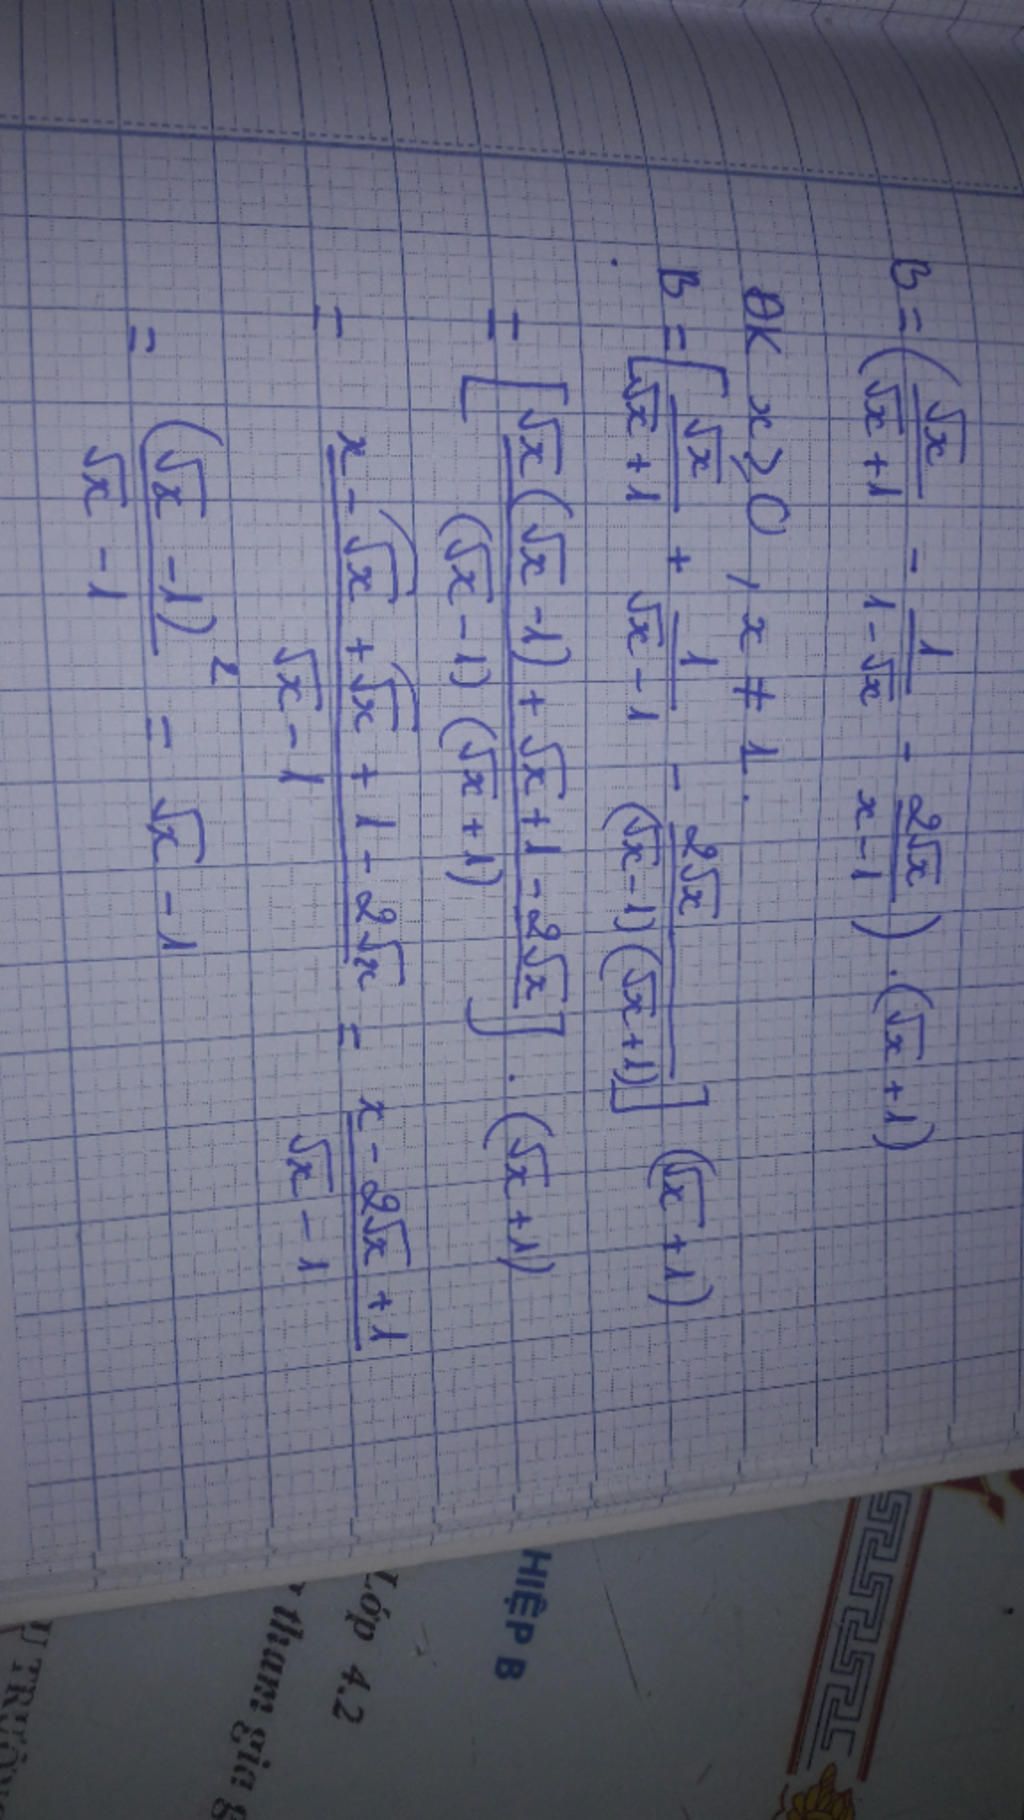 B = (√x/(√x+1) - 1/(1-√x) - 2√x/(x-1)) . (√x+1)
ĐK x ≥ 0, x ≠ 1.
B = [√x/(√x+1) + 1/(√x-1) - 2√x/((√x-1)(√x+1))] (√x+1)
= [(√x(√x-1) + √x+1 - 2√x)/((√x-1)(√x+1))] . (√x+1)
= (x - √x + √x + 1 - 2√x)/(√x-1) = (x - 2√x + 1)/(√x-1)
= (√x-1)²/(√x-1) = √x - 1
HIỆP B
Lớp 4.2
tham gia